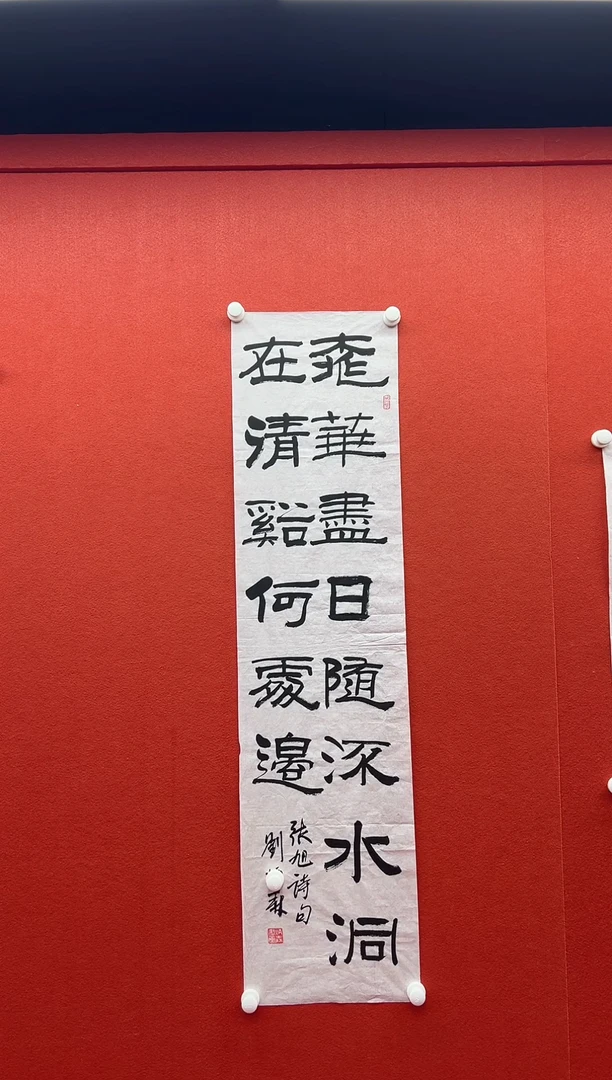 桃華盡日随流水洞
在清谿何處邊
张旭詩句
劉